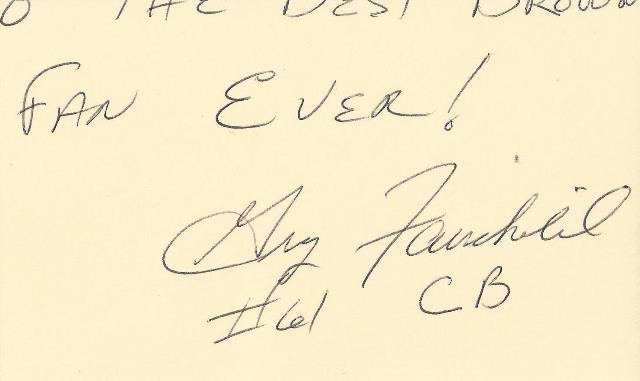 O THE BEST BROWN
FAN EVER!
Greg Fairchild
#61 CB